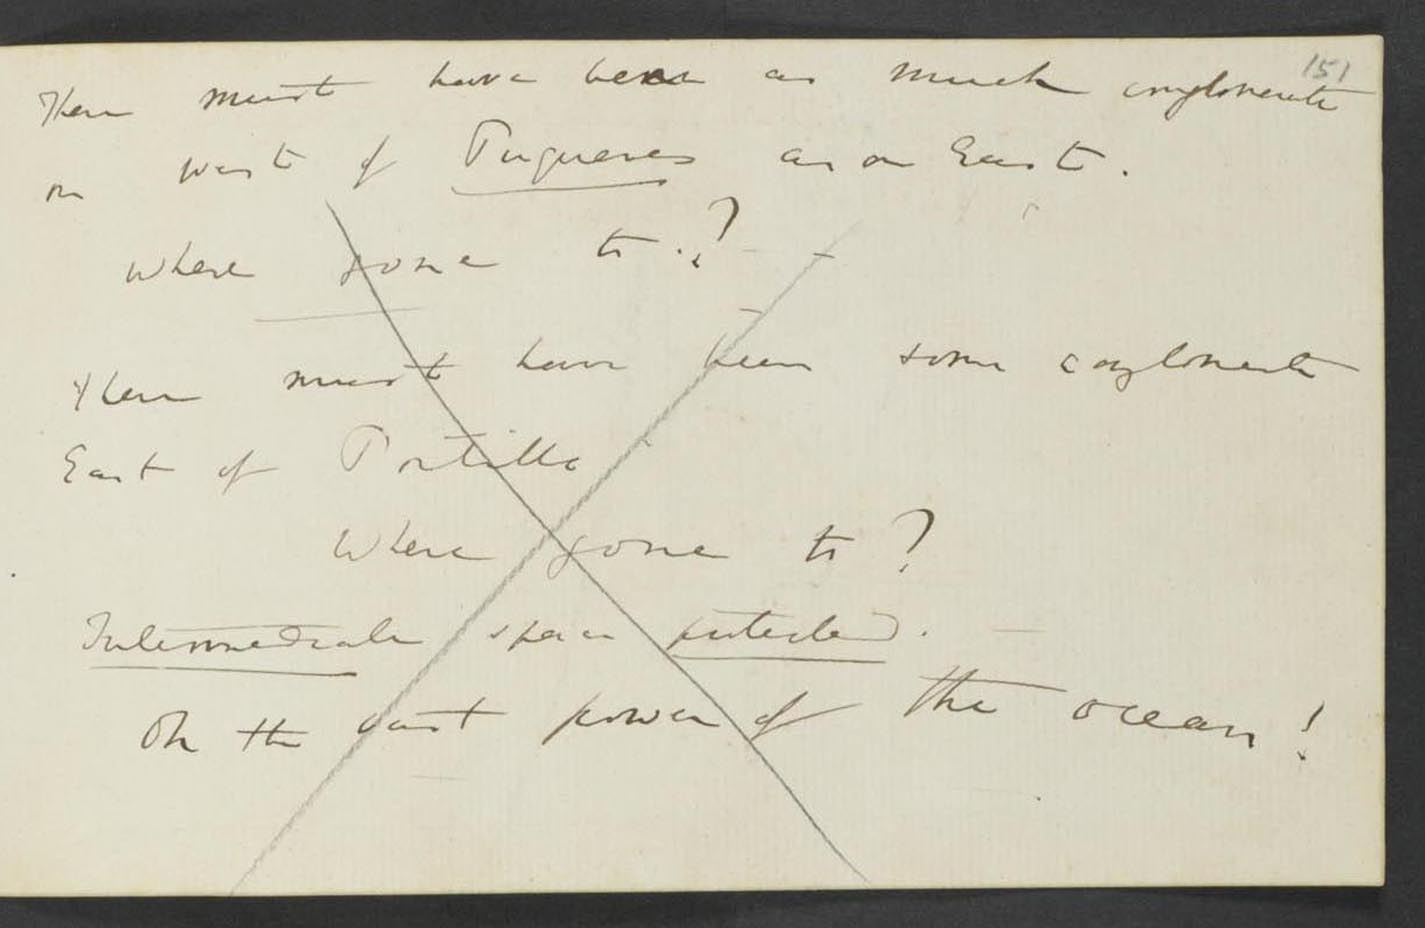 151
There must have been as much conglomerate
on west of Puquenes as on East.
where gone to.?
There must have been some conglomerate
East of Portillo
Where gone to?
Intermediate space protected.
Oh the vast power of the ocean!